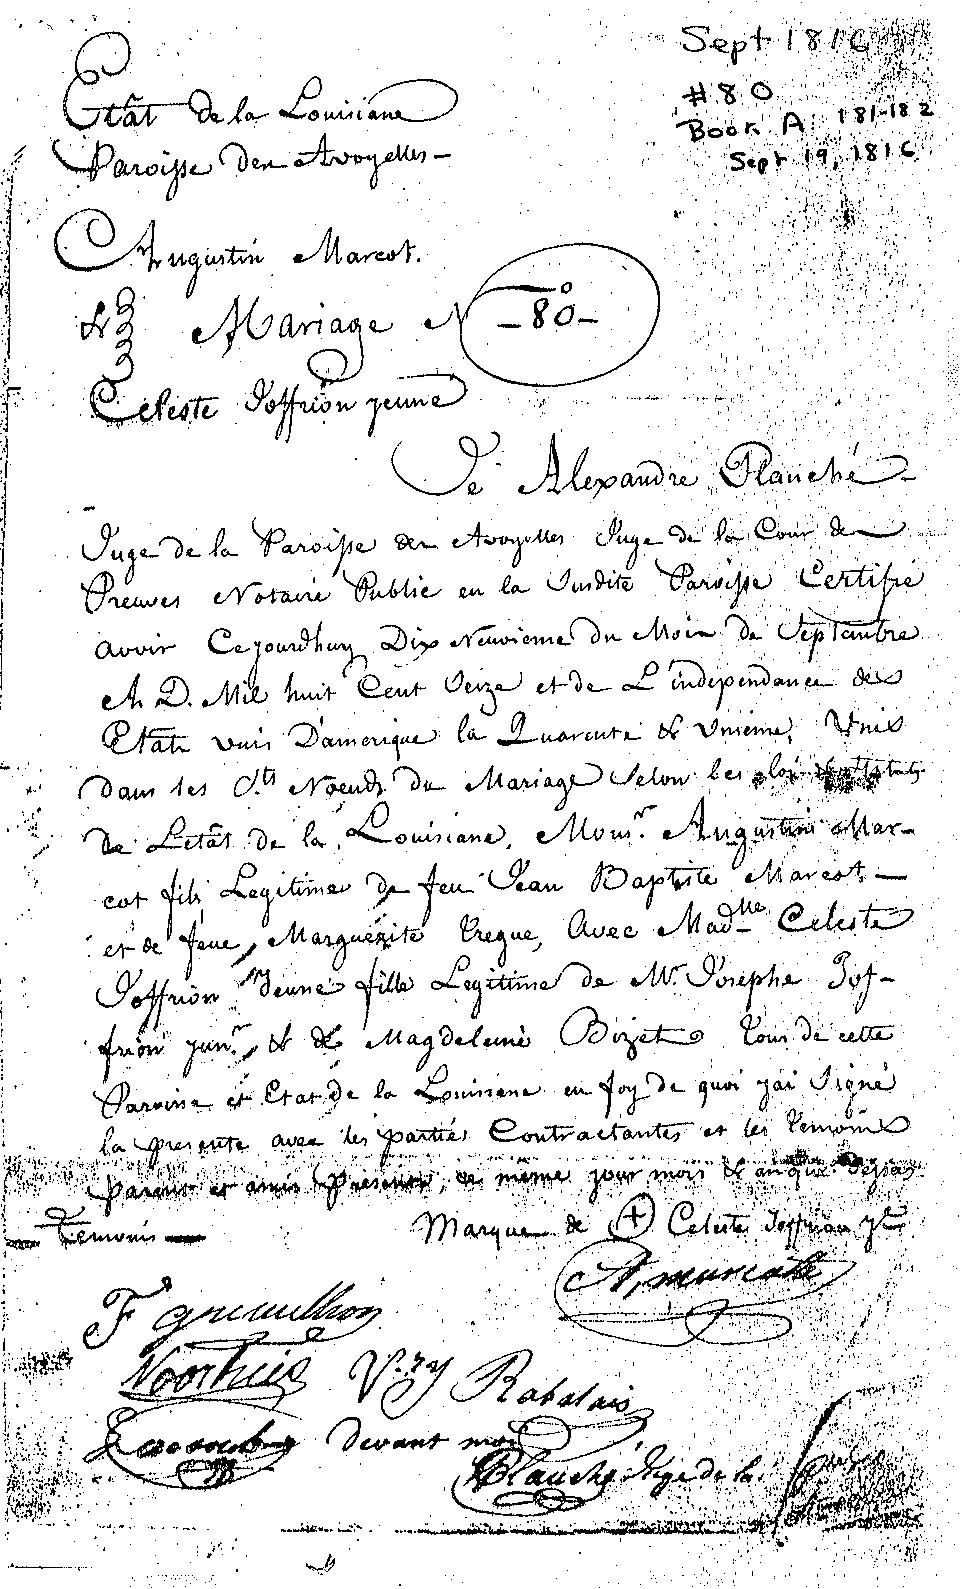 Sept 1816
#80
Book A 181-182
Sept 19, 1816
Etât de la Louisiane
Paroisse den Avoyelles—
Augustin Marcot.
&
Mariage N° —80—
Celeste Joffrion jeune
Je Alexandre Planché—
Juge de la Paroisse den Avoyelles Juge de la Cour de
Preuves Notaire Public en la Susdite Paroisse Certifie
avoir Cejourdhuy Dix Neuvieme du Mois de Septembre
An D. Mil huit Cent Seize et de L'independance des
Etats unis D'amerique la Quarente & Unieme, Unis
dans les S.ts Noeuds du Mariage Selon les loix
de Letât de la Louisiane, Mons.r Augustin Mar-
cot fils Legitime de feu Jean Baptiste Marcot—
et de feue Marguérite Tregue, Avec Madlle Celeste
Joffrion Jeune fille Legitime de Mr. Josephe Jof-
frion jun.r & de Magdeleine Bizet Tous de cette
Paroisse et Etat de la Louisiane en foy de quoi j'ai Signé
la presente avec les parties Contractantes et les Temoins
parens et amis Présens, ce même jour mois & an que dessus
Temoins— Marque de + Celeste Joffrion jne
A, marcotte
F gremillion
Voorhies V.ry Rabalais
devant moi
Planché Juge de la